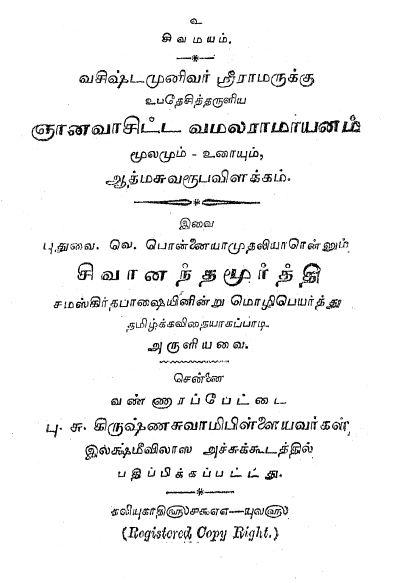 உ
சிவமயம்.
வசிஷ்டமுனிவர் ஸ்ரீராமருக்கு
உபதேசித்தருளிய
ஞானவாசிட்ட வமலராமாயனம்
மூலமும் - உரையும்,
ஆத்மசுவரூபவிளக்கம்.
இவை
புதுவை. வெ. பொன்னையாமுதலியாரென்னும்
சிவானந்தமூர்த்தி
சமஸ்கிர்தபாஷையினின்று மொழிபெயர்த்து
தமிழ்க்கவிதையாகப்பாடி
அருளியவை.
சென்னை
வண்ணாரப்பேட்டை
பு. சு. கிருஷ்ணசுவாமிபிள்ளையவர்கள்
இலக்ஷ்மீவிலாஸ அச்சுக்கூடத்தில்
பதிப்பிக்கப்பட்டது.
கலியுகாதி
(Registered Copy Right.)